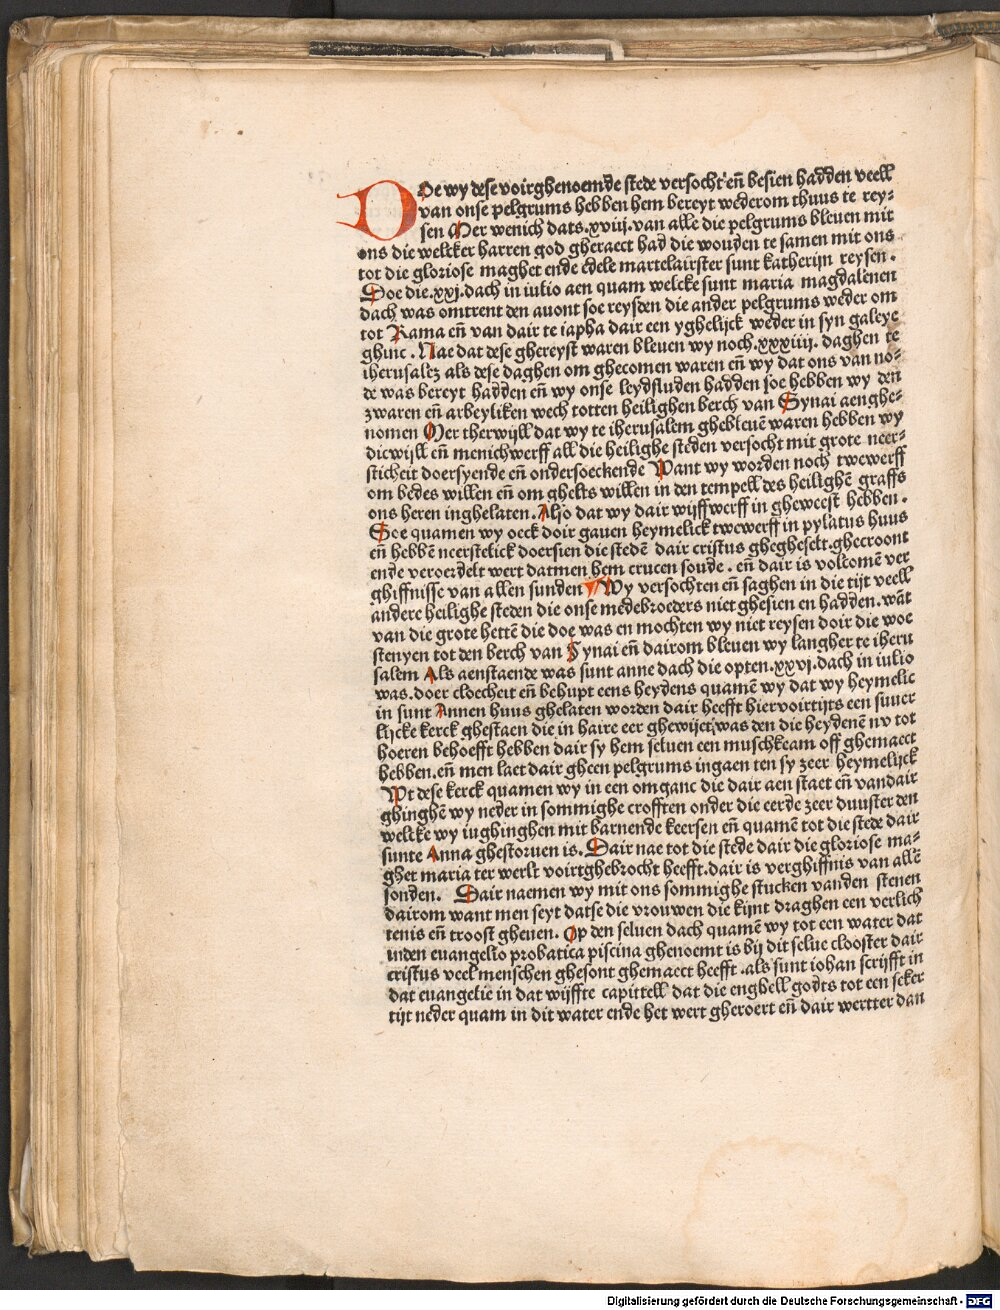 DOe wy dese voirghenoemde stede versocht en̄ besien hadden veell
van onse pelgrums hebben hem bereyt wederom thuus te rey-
sen Mer wenich dats.xviij.van alle die pelgrums bleuen mit
ons die welcker harren god gheraect had die wouden te samen mit ons
tot die gloriose maghet ende edele martelairster sunt katherijn reysen.
Doe die.xxj.dach in iulio aen quam welcke sunt maria magdalenen
dach was omtrent den auont soe reysden die ander pelgrums weder om
tot Rama en̄ van dair te iapha dair een yghelijck weder in syn galeye
ghinc. Nae dat dese ghereyst waren bleuen wy noch.xxxiiij. daghen te
iherusalez als dese daghen om ghecomen waren en̄ wy dat ons van no-
de was bereyt hadden en̄ wy onse leydsluden hadden soe hebben wy den
zwaren en̄ arbeyliken wech totten heilighen berch van Synai aenghe-
nomen Mer therwijll dat wy te iherusalem ghebleuē waren hebben wy
dicwijll en̄ menichwerff all die heilighe steden versocht mit grote neer-
sticheit doersyende en̄ ondersoeckende Want wy worden noch twewerff
om bedes willen en̄ om ghelts willen in den tempell des heilighē graffs
ons heren inghelaten. Also dat wy dair wijffwerff in gheweest hebben.
Soe quamen wy oeck doir gauen heymelick twewerff in pylatus huus
en̄ hebbē neerstelick doersien die stedē dair cristus ghegheselt.ghecroont
ende veroerdelt wert datmen hem crucen soude. en̄ dair is volcomē ver
ghiffnisse van allen sunden ¶ Wy versochten en̄ saghen in die tijt veell
andere heilighe steden die onse medebroeders niet ghesien en hadden.wāt
van die grote hettē die doe was en mochten wy niet reysen doir die woe
stenyen tot den berch van Synai en̄ dairom bleuen wy langher te iheru
salem Als aenstaende was sunt anne dach die opten.xxvj.dach in iulio
was.doer cloecheit en̄ behupt eens heydens quamē wy dat wy heymelic
in sunt Annen huus ghelaten worden dair heefft hiervoirtijts een suuer
lijcke kerck ghestaen die in haire eer ghewijet was den die heydenē nv tot
hoeren behoefft hebben dair sy hem seluen een muschkeam off ghemaect
hebben.en̄ men laet dair gheen pelgrums ingaen ten sy zeer heymelijck
Wt dese kerck quamen wy in een omganc die dair aen staet en̄ vandair
ghinghē wy neder in sommighe crofften onder die eerde zeer duuster den
welcke wy iughinghen mit barnende keersen en̄ quamē tot die stede dair
sunte Anna ghestoruen is. Dair nae tot die stede dair die gloriose ma-
ghet maria ter werlt voirtghebrocht heefft.dair is verghiffnis van allē
sonden. Dair naemen wy mit ons sommighe stucken vanden stenen
dairom want men seyt datse die vrouwen die kijnt draghen een verlich
tenis en̄ troost gheuen. Op den seluen dach quamē wy tot een water dat
inden euangelio probatica piscina ghenoemt is bij dit selue clooster dair
cristus veel menschen ghesont ghemaect heefft.als sunt iohan scrijfft in
dat euangelie in dat wijffte capittell dat die enghell godts tot een seker
tijt neder quam in dit water ende het wert gheroert en̄ dair wertter dan
Digitalisierung gefördert durch die Deutsche Forschungsgemeinschaft - DFG